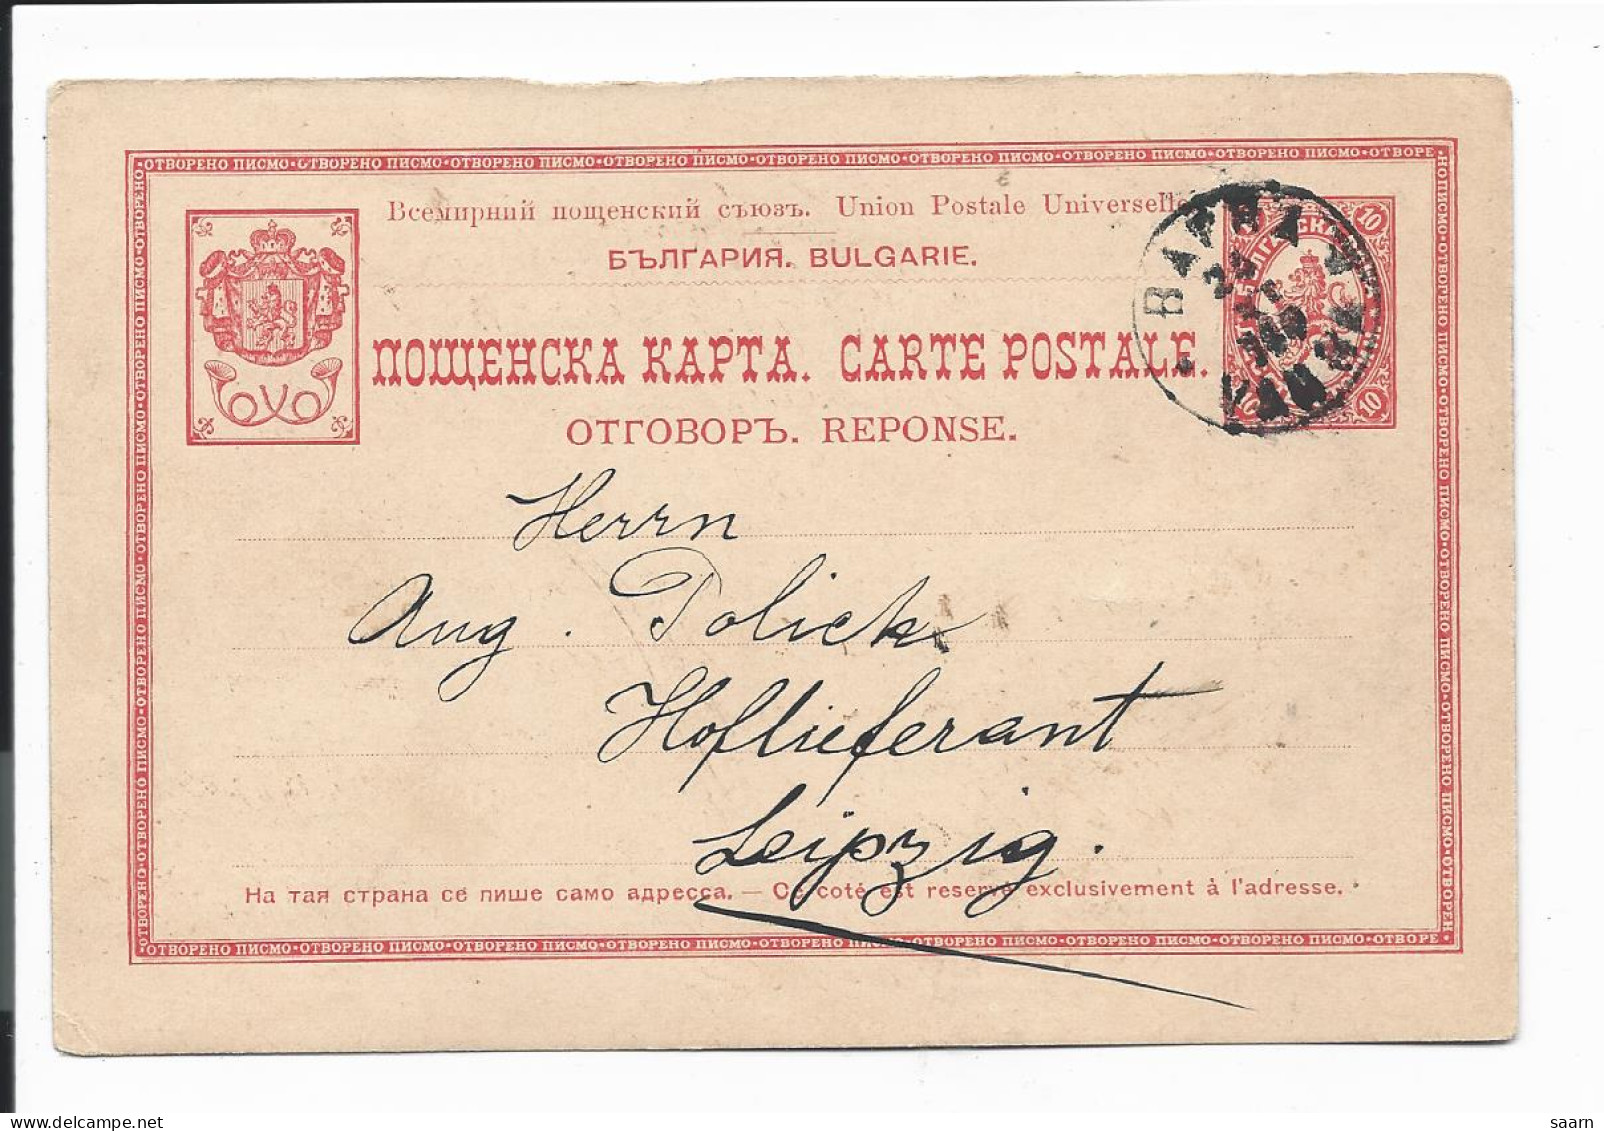 ОТВОРЕНО ПИСМО•ОТВОРЕНО ПИСМО•ОТВОРЕНО ПИСМО•ОТВОРЕНО ПИСМО•ОТВОРЕНО ПИСМО•ОТВОРЕНО ПИСМО•ОТВОРЕНО ПИСМО•ОТВОРЕНО ПИСМО•ОТВОРЕ
Всемирний пощенский съюзъ. Union Postale Universelle
БЪЛГАРИЯ. BULGARIE.
ПОЩЕНСКА КАРТА. CARTE POSTALE.
ОТГОВОРЪ. REPONSE.
10 10 10
ВАРНА
VARNA
Herrn
Aug. Polich
Hoflieferant
Leipzig.
На тая страна се пише само адресса. — Ce coté est reservé exclusivement à l'adresse.
ОТВОРЕНО ПИСМО•ОТВОРЕНО ПИСМО•ОТВОРЕНО ПИСМО•ОТВОРЕНО ПИСМО•ОТВОРЕНО ПИСМО•ОТВОРЕНО ПИСМО•ОТВОРЕНО ПИСМО•ОТВОРЕНО ПИСМО•ОТВОРЕ
saarn